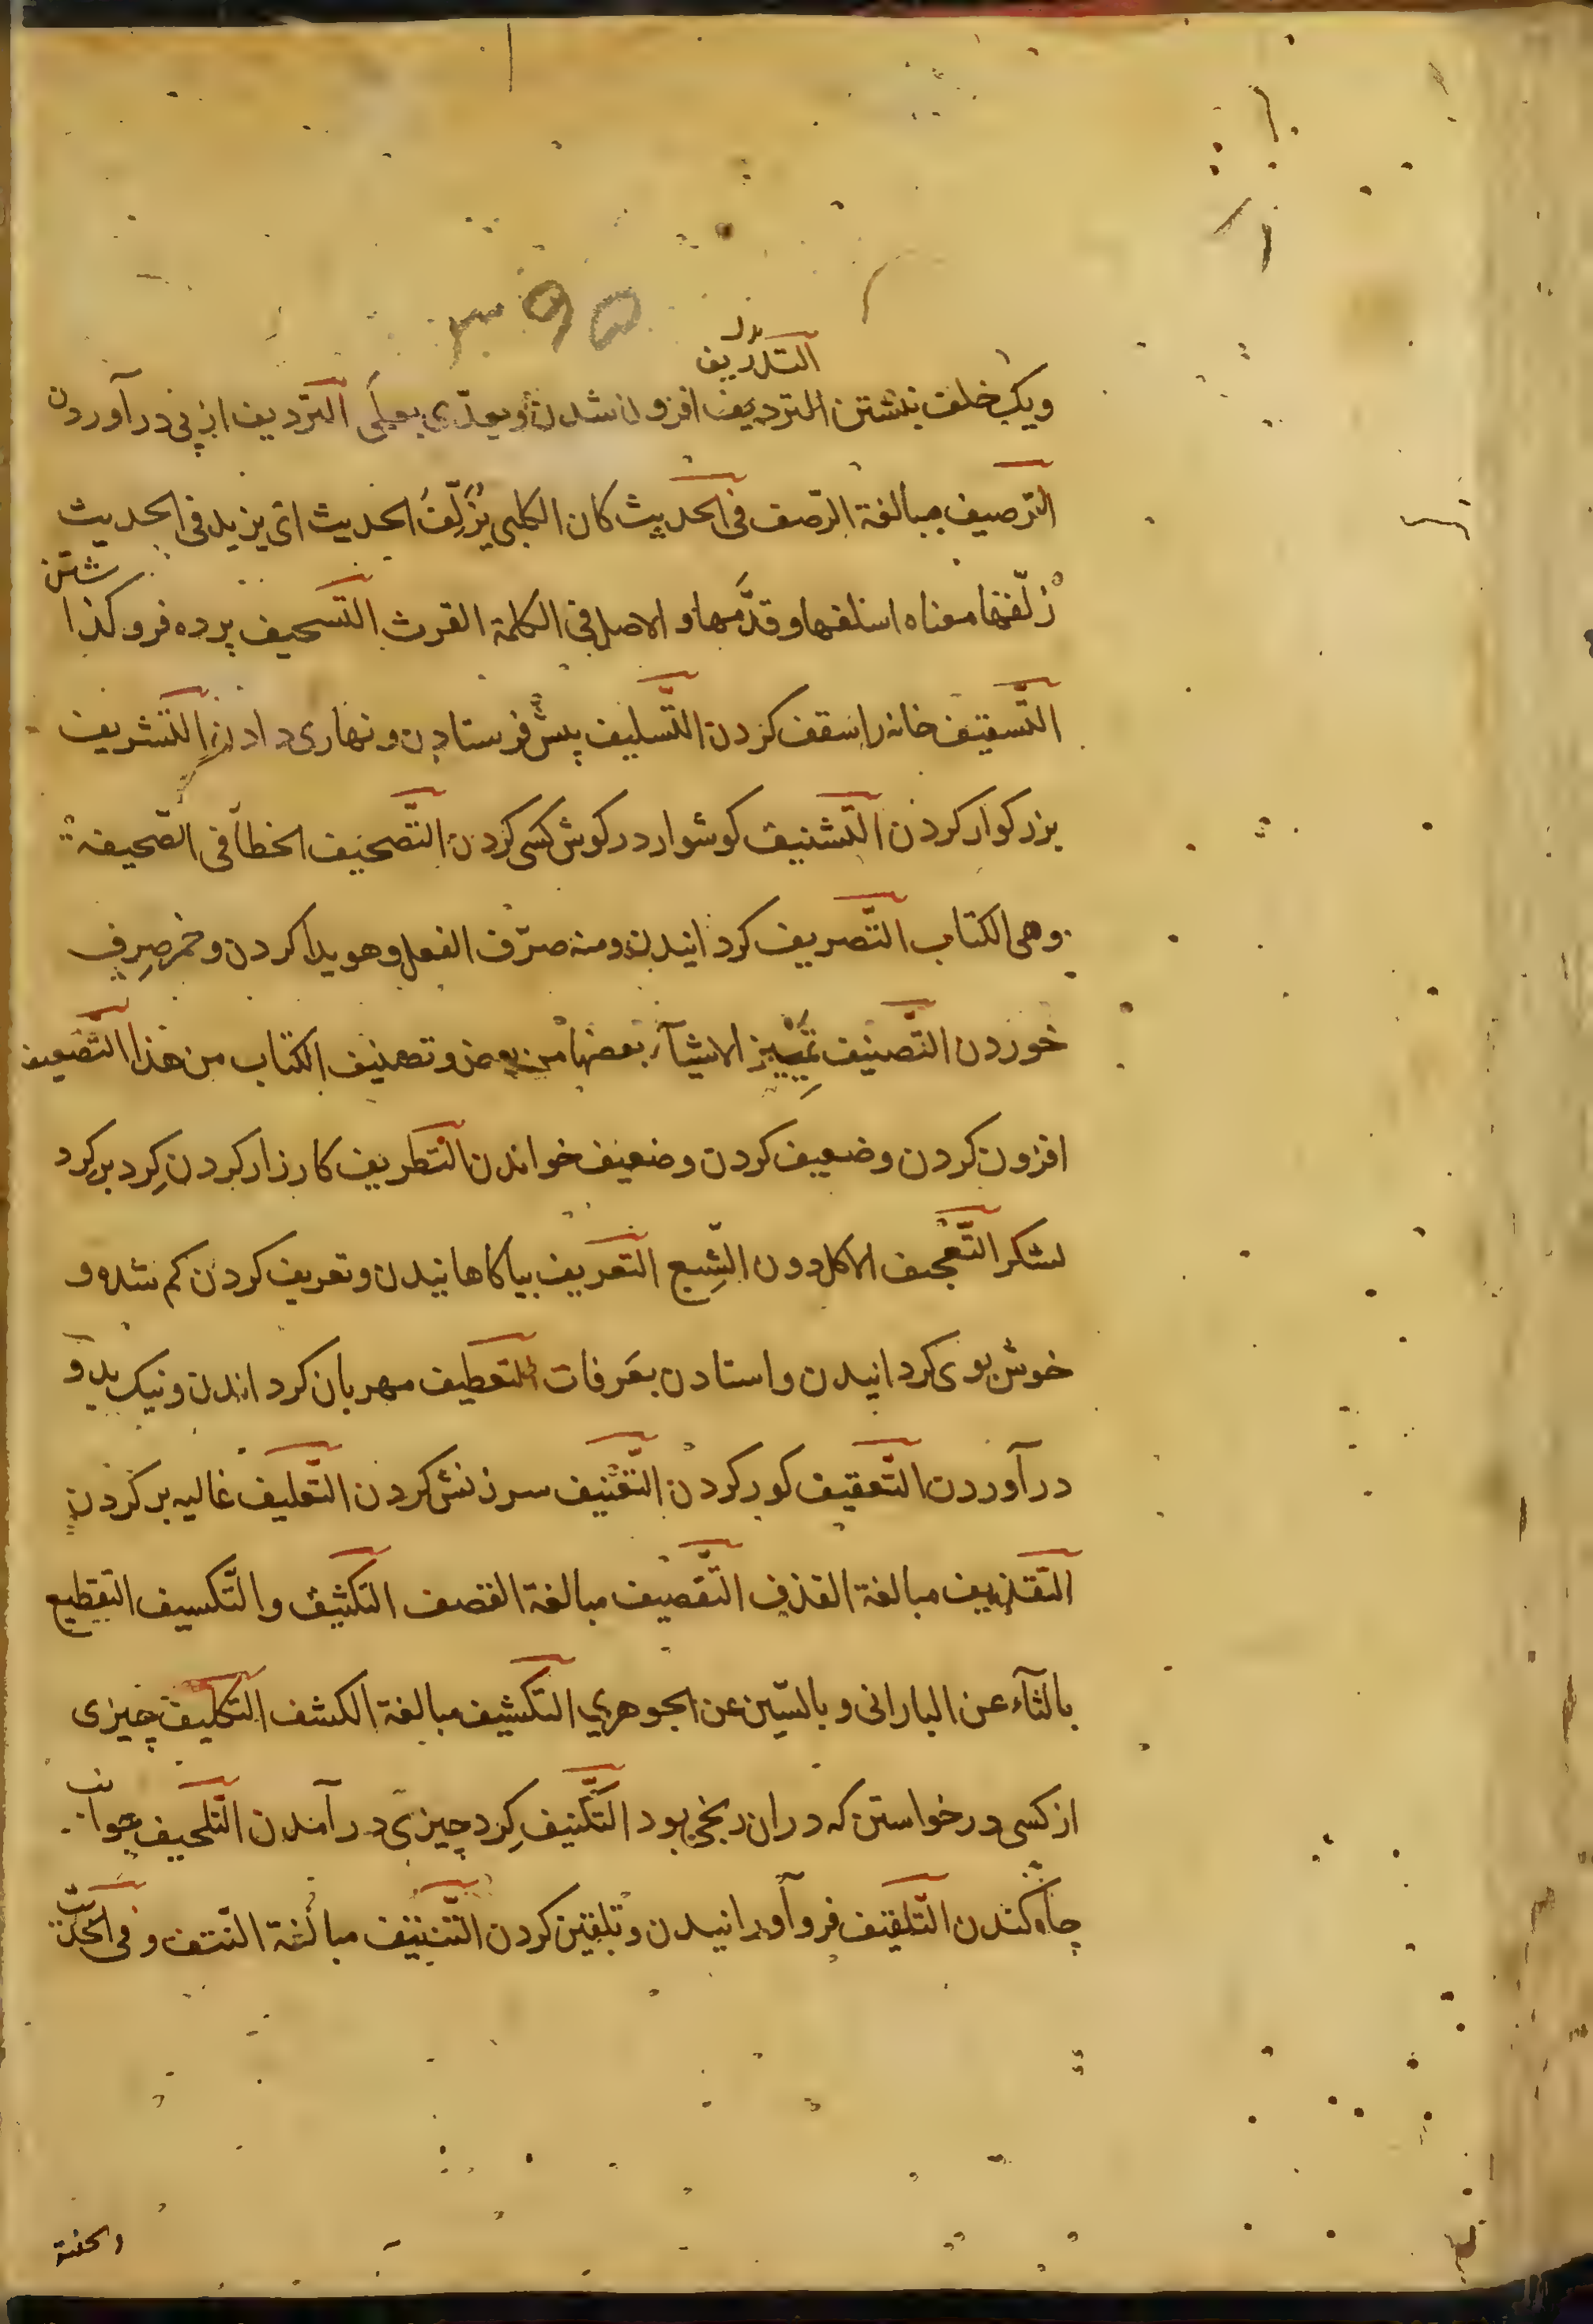 التذریف
ویک خلف بنشتن التردیف افزون شدن ویعدّی بعلی التردیف از پی درآوردن
الترصیف مبالغة الرّصف فی الحدیث کان الکلبی یُزَلِّفُ الحدیث ای یزید فی الحدیث
زلّفنها معناه اسلفها وقدّمها والاصل فی الکلمة القرب التسحیف پرده فروکذا شتن
التّسقیف خانه را سقف کردن التّسلیف پیش فرستادن ونهاری دادن التّشریف
بزرکوار کردن التّشنیف کوشوار در کوش کسی کردن التّصحیف الخطأ فی الصّحیفة
وهی الکتاب التّصریف کردانیدن ومنه صرّف الفعل وهویدا کردن وخمر صِرف
خوردن التّصنیف تمییز الاشیآء بعضها من بعض وتصنیف الکتاب من هذا التّضعیف
افزون کردن وضعیف کردن وضعیف خواندن التّطریف کارزار کردن کِرد بر کرد
لشکر التّعجیف الاکل دون الشِّبع التّعریف بیاکاهانیدن وتعریف کردن کم شده و
خوش بوی کردانیدن واستادن بعَرفات التعطیف مهربان کرداندن ونیک بدو
درآوردن التّعقیف کور کردن التّعنیف سرزنش کردن التّغلیف غالیه بر کردن
التّقذیف مبالغة القذف التّقصیف مبالغة القصف التکثیف والتّکسیف التقطیع
بالثآء عن البارانی وبالسّین عن الجوهری التکشیف مبالغة الکشف التّکلیف چیزی
از کسی درخواستن که دران رنجی بود التّکنیف کِرد چیزی درآمدن التّلجیف جوانب
چاه کندن التّلقیف فروآورانیدن وتلقین کردن التّنتیف مبالغة النّتف وفی الحدیث
الحنة